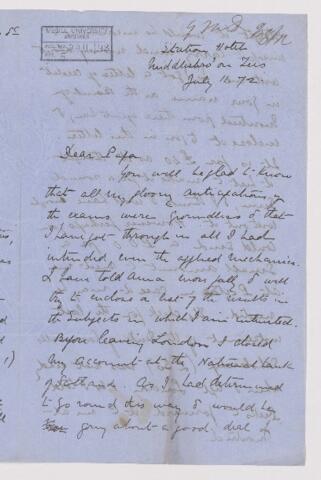 Station Hotel
Middlesbro' on Tees
July 16. 72
Dear Papa
You will be glad to know
that all my gloomy anticipations of
the exams were groundless & that
I have got through in all I had
intended, even the applied mechanics.
I have told Anna more fully & will
try to enclose a list of the results in
the subjects in which I am interested.
Before leaving London I closed
my account at the National Bank
of Scotland. As I had determined
to go round this way & would be
going about a good deal